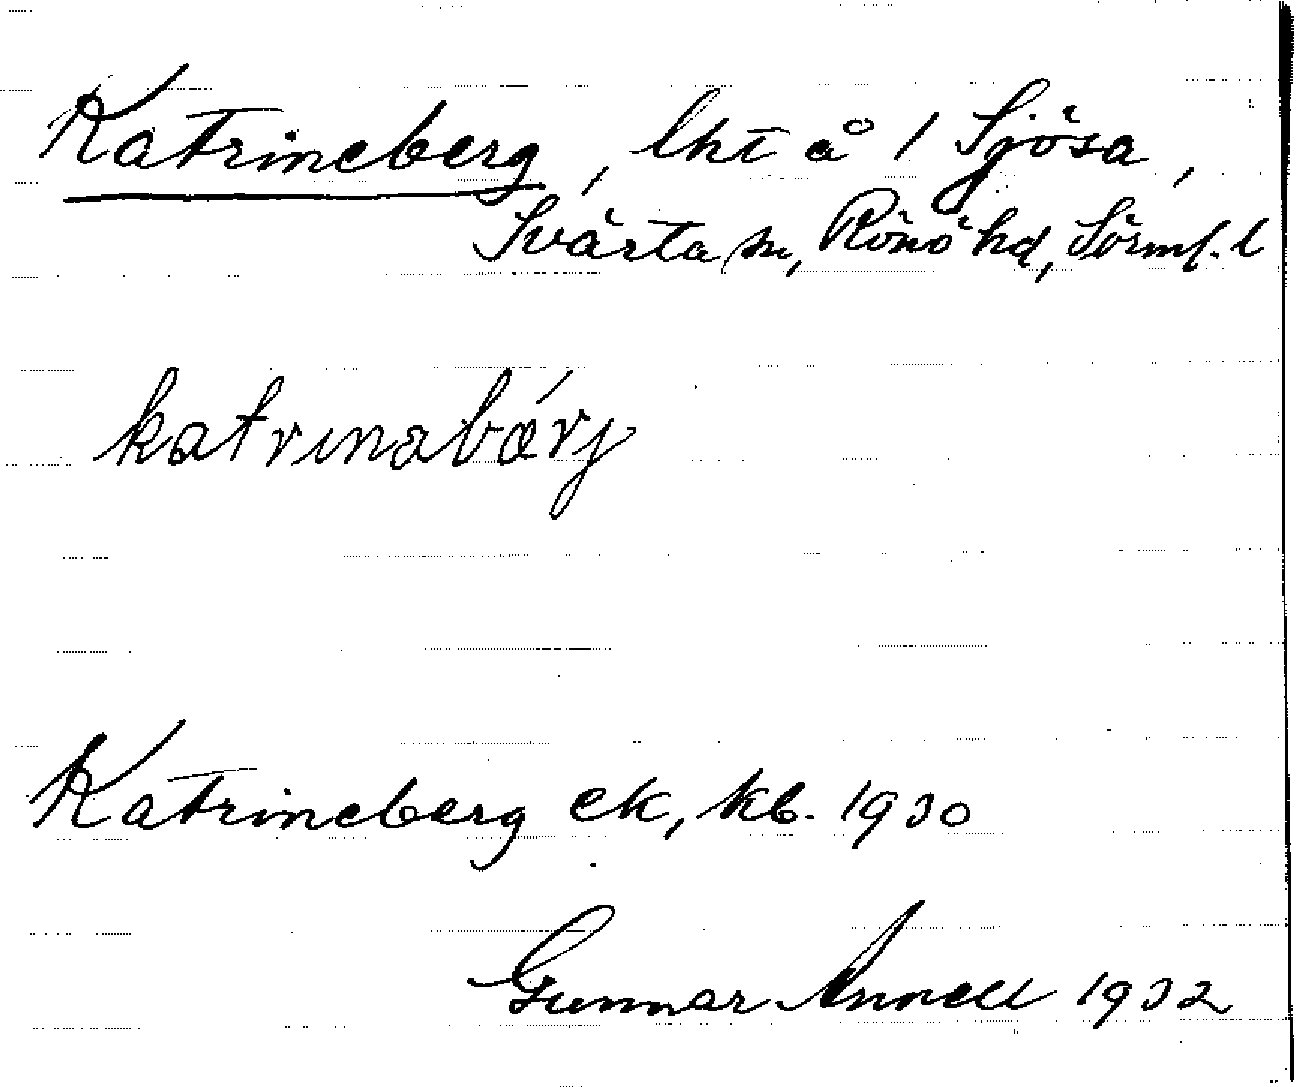 Katrineberg, lht å 1 Sjösa,
Svärta sn, Rönö hd, Sörml. l
katrinabǽrj
Katrineberg ek, kb. 1930
Gunnar Annell 1932